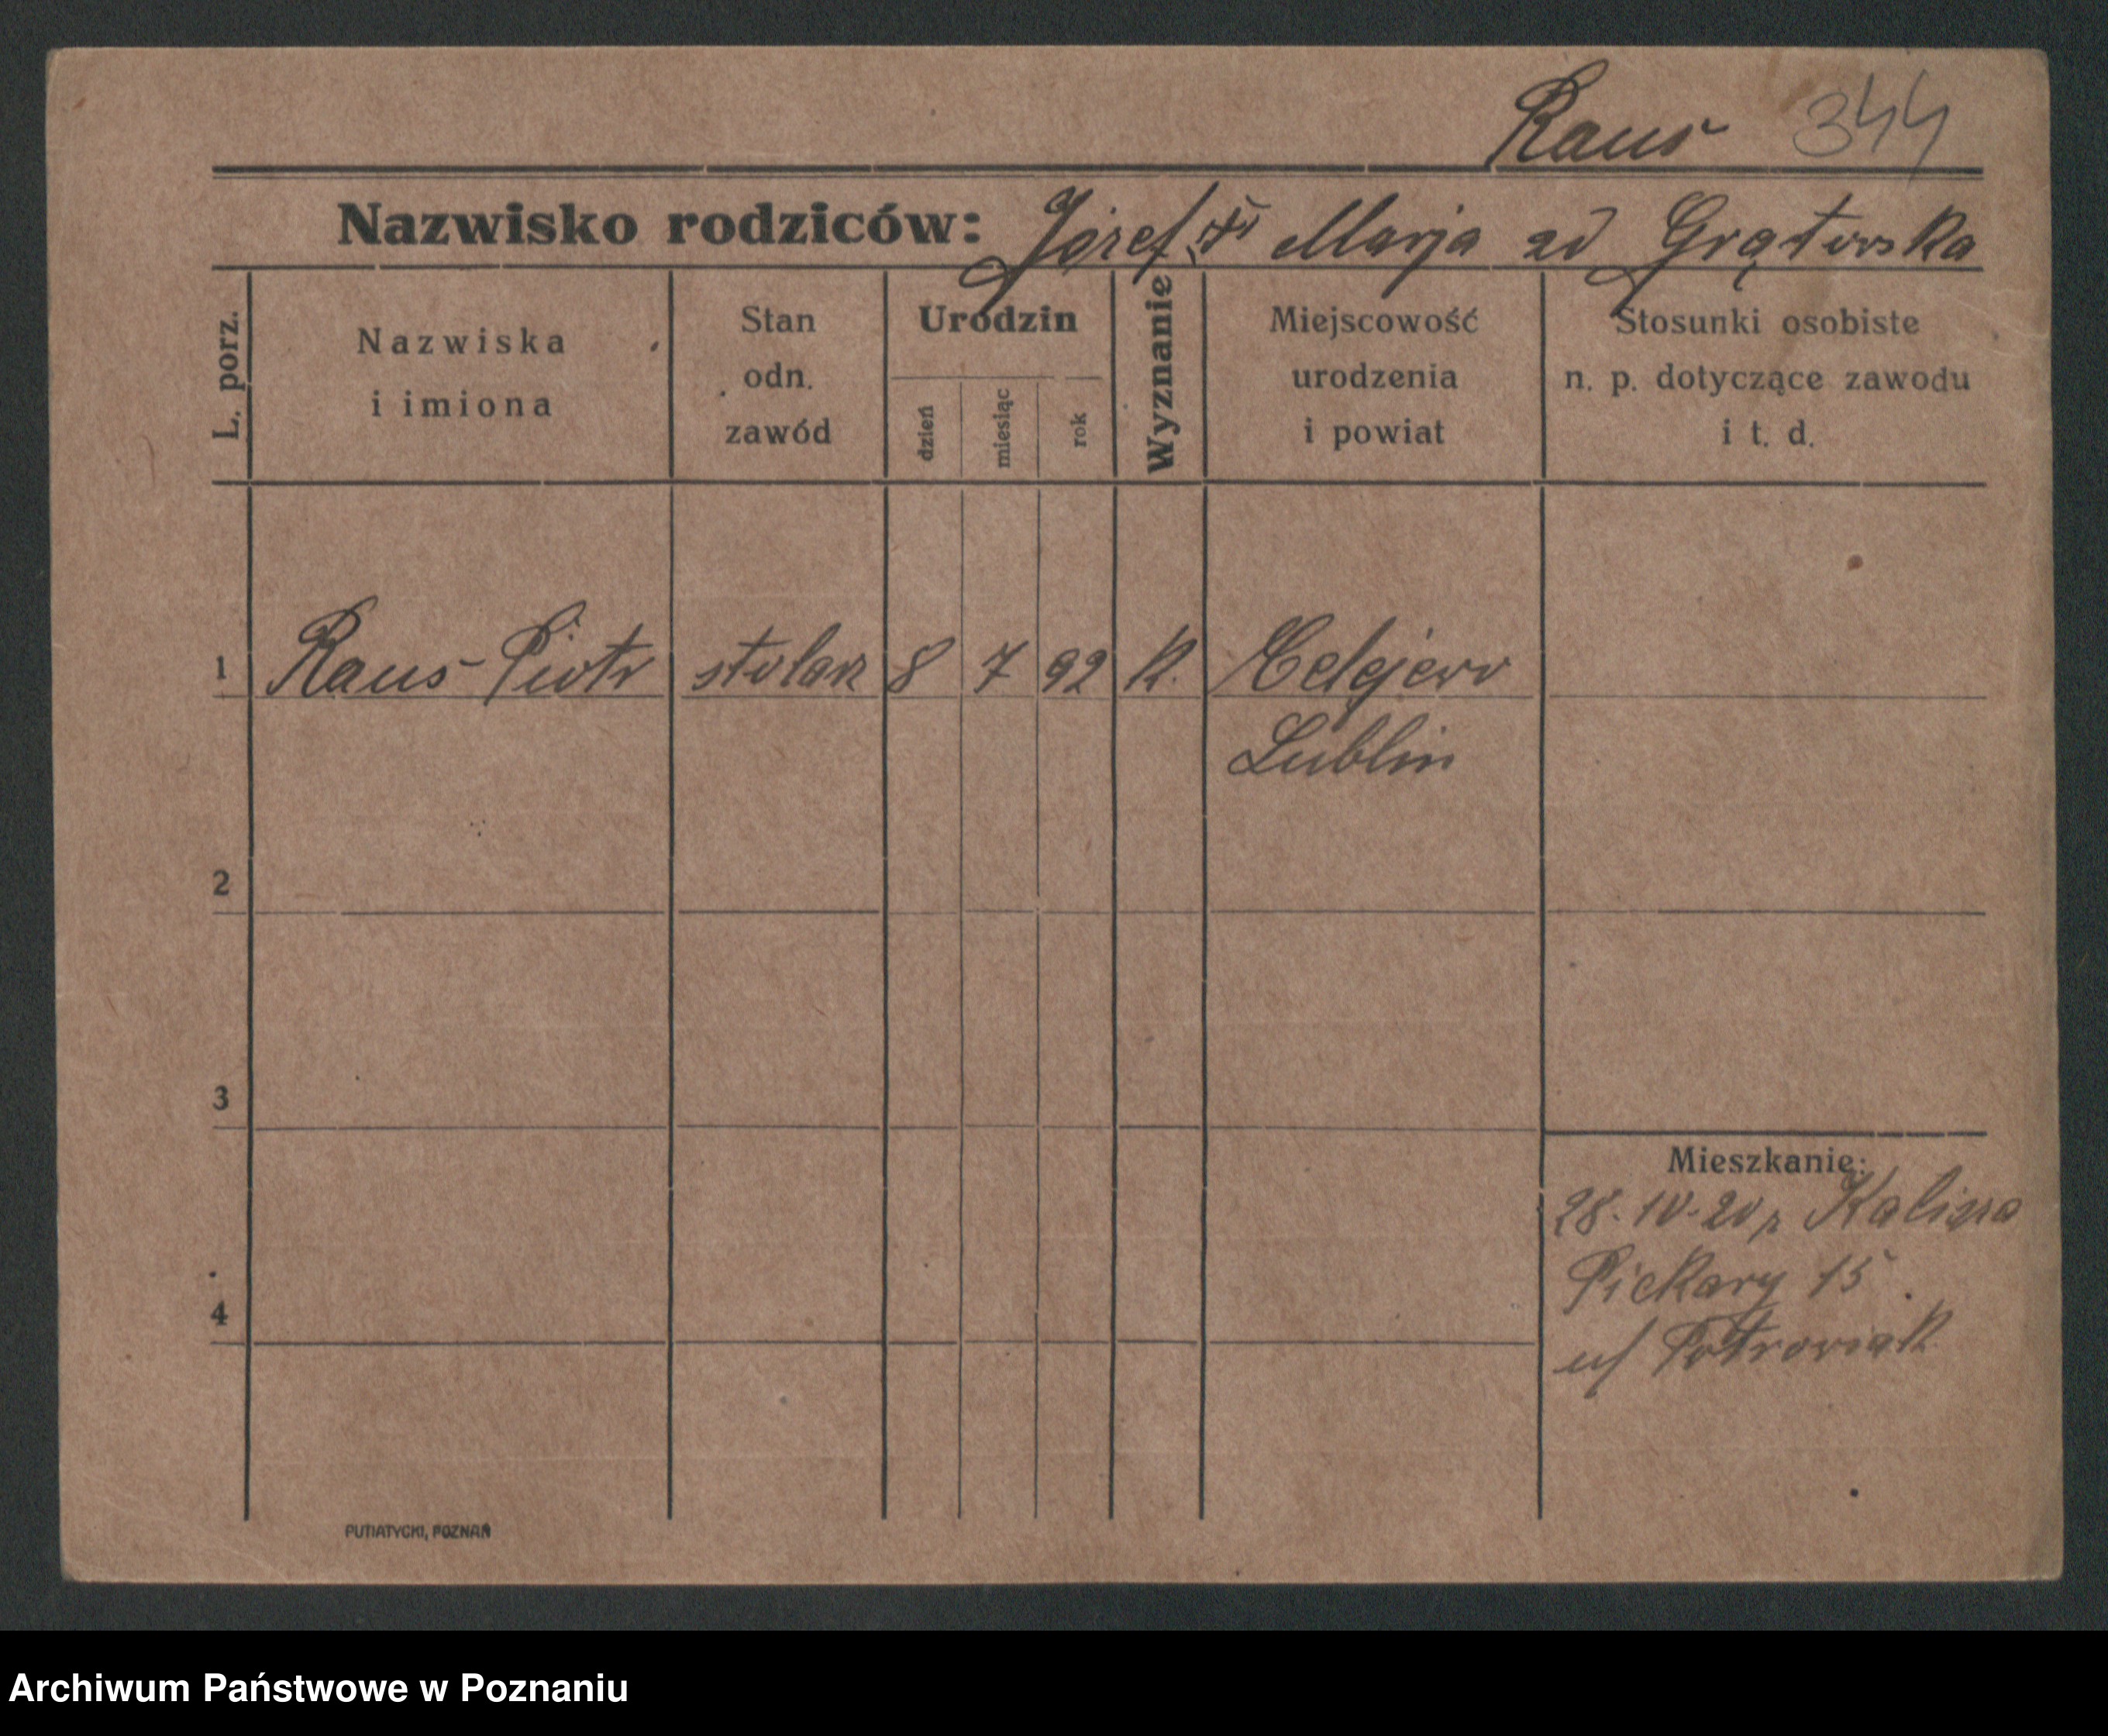 Raus 344
Nazwisko rodziców: Józef Marja zd Grątowska
L. porz.
Nazwiska
i imiona
Stan
odn.
zawód
Urodzin
dzień
miesiąc
rok
Wyznanie
Miejscowość
urodzenia
i powiat
Stosunki osobiste
n. p. dotyczące zawodu
i t. d.
1 Raus Piotr stolarz 8 7 92 k. Celejew
Lublin
2
3
4
Mieszkanie:
28.10.20 z Kalisza
Piekary 15
u/
PUTIATYCKI, POZNAŃ
Archiwum Państwowe w Poznaniu